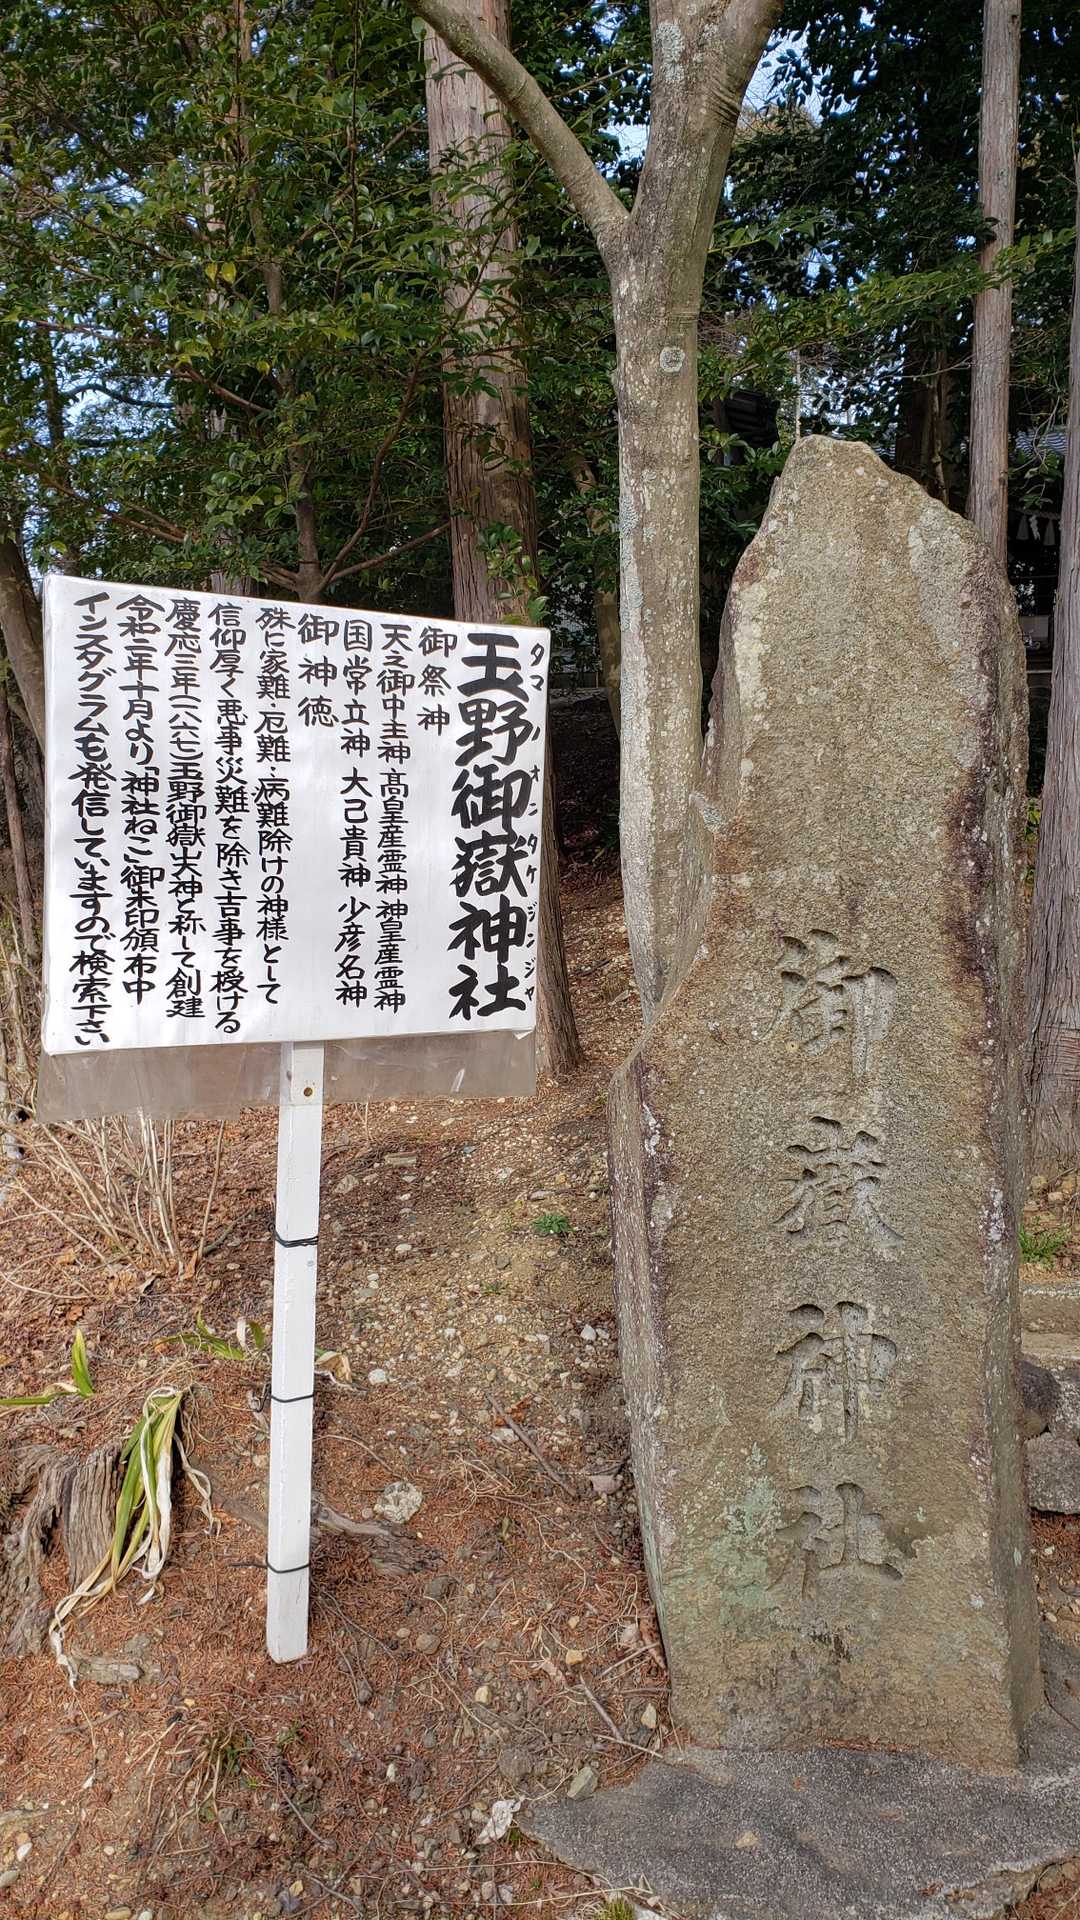 玉野御嶽神社
タマノオンタケジンジャ
御祭神
天之御中主神 高皇産霊神 神皇産霊神
国常立神 大己貴神 少彦名神
御神徳
殊に家難・厄難・病難除けの神様として
信仰厚く悪事災難を除き吉事を授ける
慶応三年(一八六七)玉野御嶽大神と称して創建
令和二年十月より「神社ねこ」御朱印頒布中
インスタグラムも発信していますので検索下さい
御嶽神社